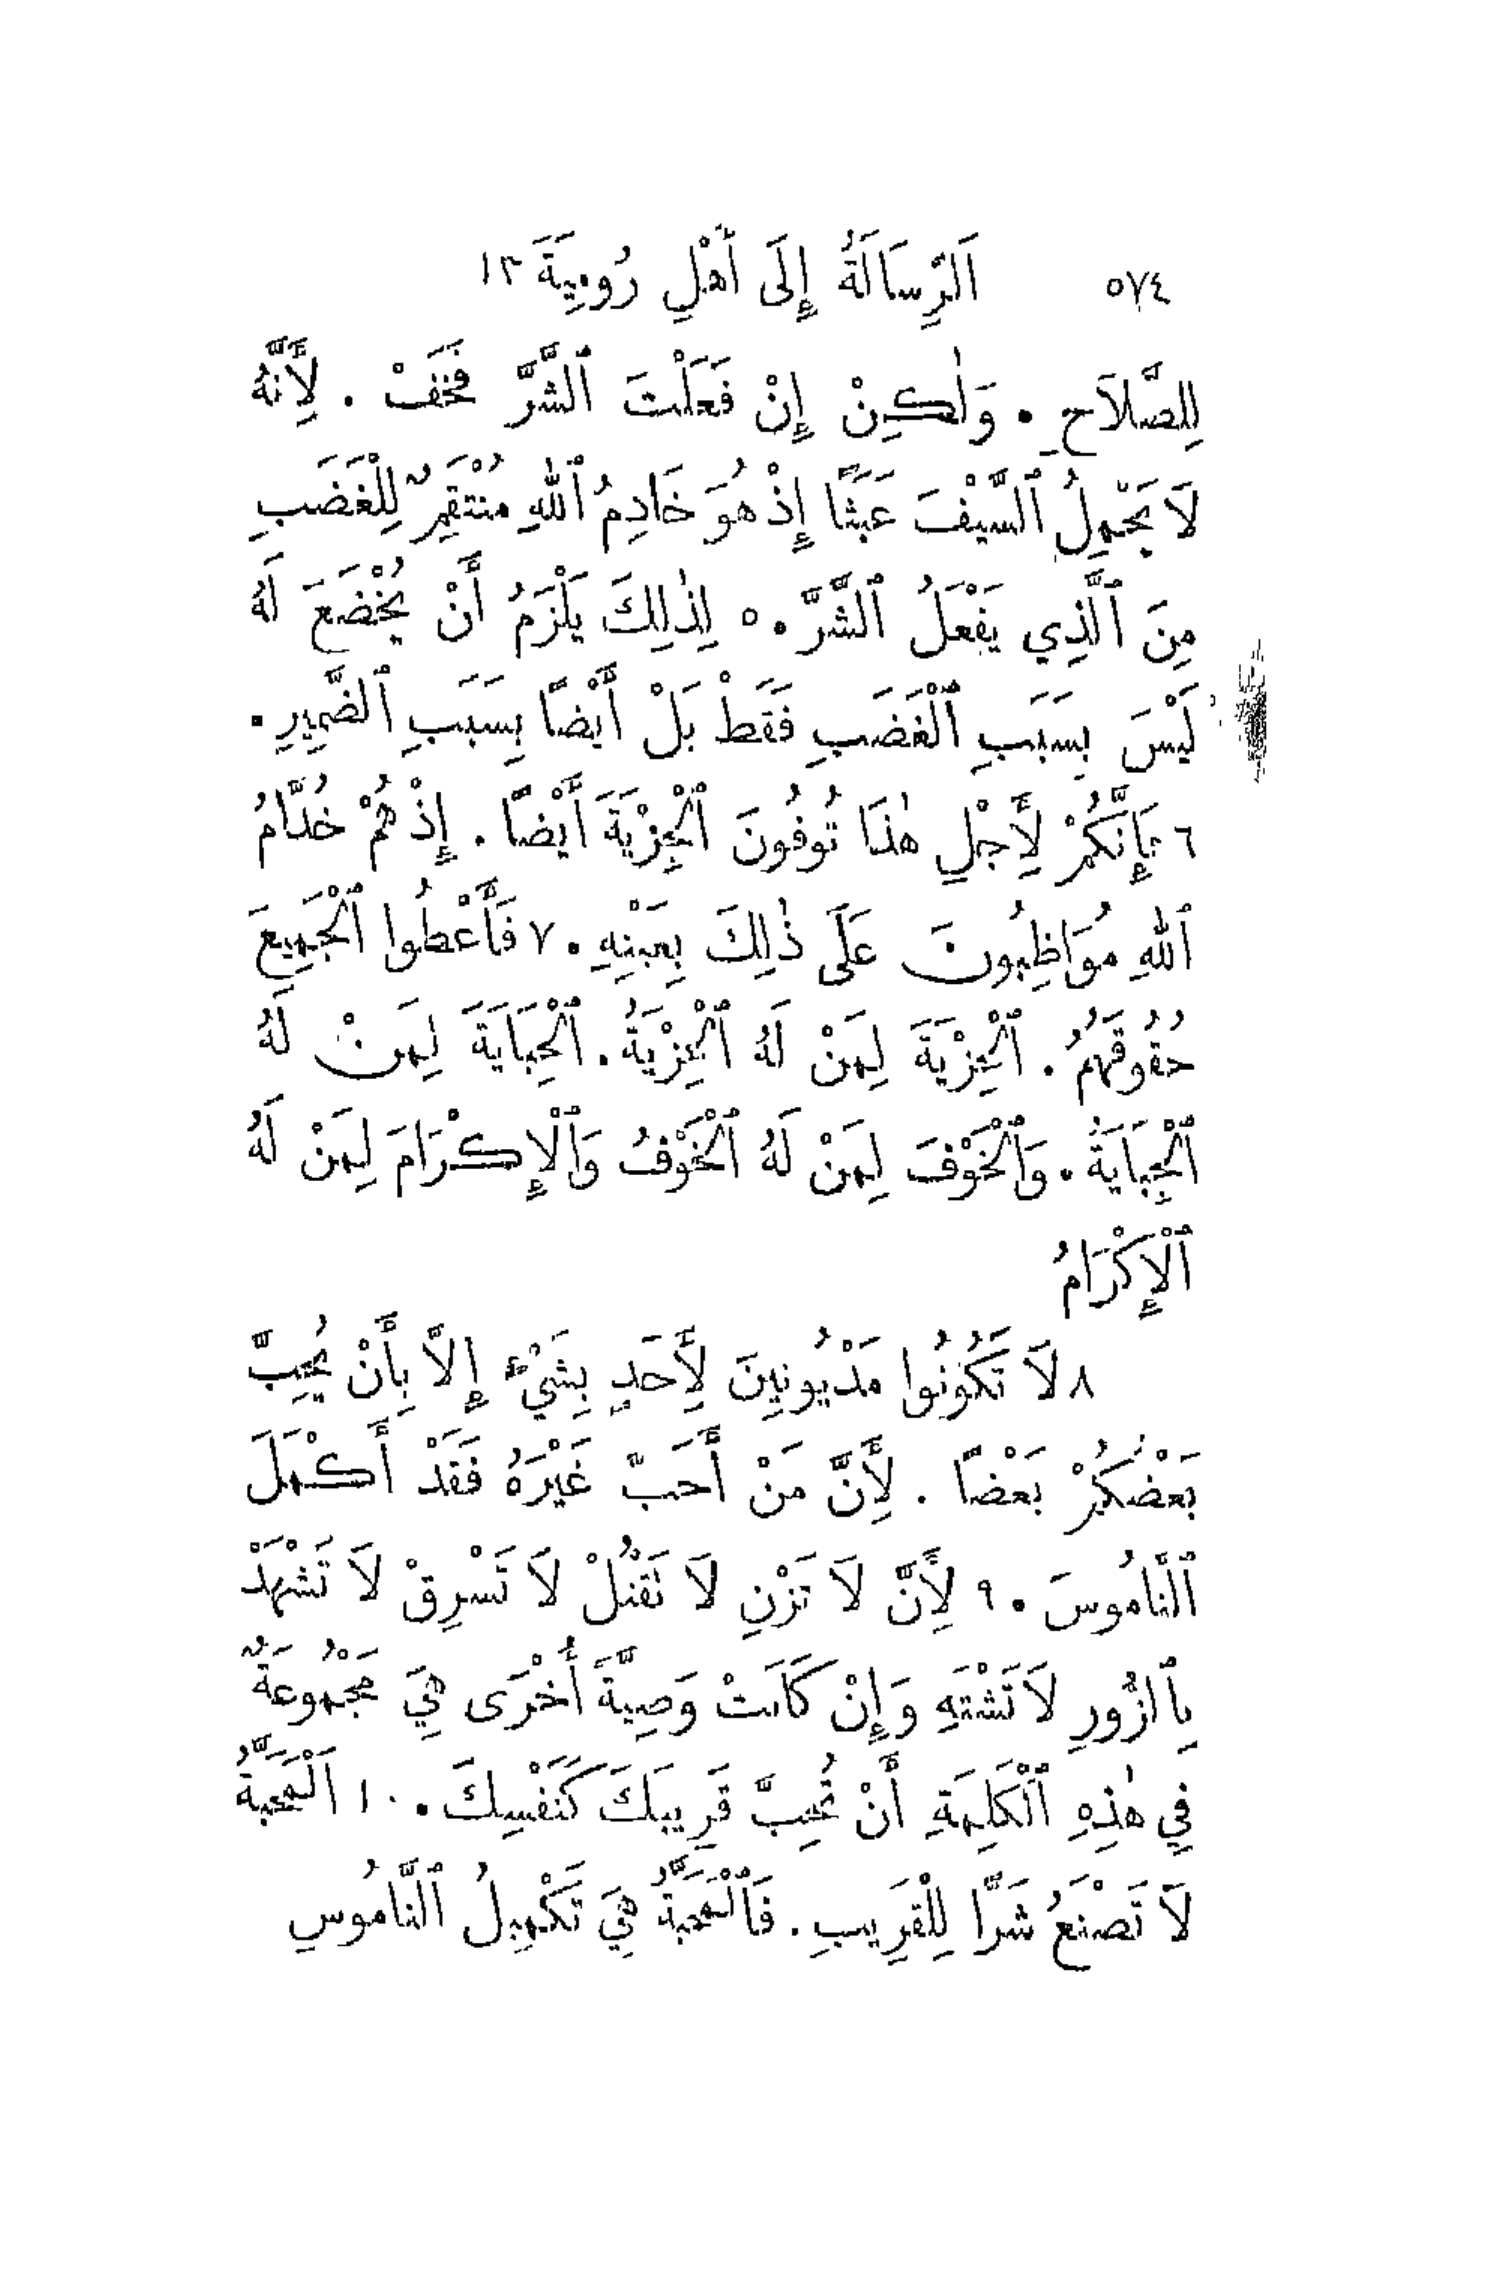 ٥٧٤ اَلرِّسَالَةُ إِلَى أَهْلِ رُومِيَةَ ١٣
لِلصَّلَاحِ. وَلٰكِنْ إِنْ فَعَلْتَ ٱلشَّرَّ فَخَفْ. لِأَنَّهُ
لَا يَحْمِلُ ٱلسَّيْفَ عَبَثًا إِذْ هُوَ خَادِمُ ٱللهِ مُنْتَقِمٌ لِلْغَضَبِ
مِنَ ٱلَّذِي يَفْعَلُ ٱلشَّرَّ. ٥ لِذٰلِكَ يَلْزَمُ أَنْ يُخْضَعَ لَهُ
لَيْسَ بِسَبَبِ ٱلْغَضَبِ فَقَطْ بَلْ أَيْضًا بِسَبَبِ ٱلضَّمِيرِ.
٦ فَإِنَّكُمْ لِأَجْلِ هٰذَا تُوفُونَ ٱلْجِزْيَةَ أَيْضًا. إِذْ هُمْ خُدَّامُ
ٱللهِ مُوَاظِبُونَ عَلَى ذٰلِكَ بِعَيْنِهِ. ٧ فَأَعْطُوا ٱلْجَمِيعَ
حُقُوقَهُمُ. ٱلْجِزْيَةَ لِمَنْ لَهُ ٱلْجِزْيَةُ. ٱلْجِبَايَةَ لِمَنْ لَهُ
ٱلْجِبَايَةُ. وَٱلْخَوْفَ لِمَنْ لَهُ ٱلْخَوْفُ وَٱلْإِكْرَامَ لِمَنْ لَهُ
ٱلْإِكْرَامُ
٨ لَا تَكُونُوا مَدْيُونِينَ لِأَحَدٍ بِشَيْءٍ إِلَّا بِأَنْ يُحِبَّ
بَعْضُكُمْ بَعْضًا. لِأَنَّ مَنْ أَحَبَّ غَيْرَهُ فَقَدْ أَكْمَلَ
ٱلنَّامُوسَ. ٩ لِأَنَّ لَا تَزْنِ لَا تَقْتُلْ لَا تَسْرِقْ لَا تَشْهَدْ
بِٱلزُّورِ لَا تَشْتَهِ وَإِنْ كَانَتْ وَصِيَّةً أُخْرَى هِيَ مَجْمُوعَةٌ
فِي هٰذِهِ ٱلْكَلِمَةِ أَنْ تُحِبَّ قَرِيبَكَ كَنَفْسِكَ. ١٠ اَلْمَحَبَّةُ
لَا تَصْنَعُ شَرًّا لِلْقَرِيبِ. فَٱلْمَحَبَّةُ هِيَ تَكْمِيلُ ٱلنَّامُوسِ